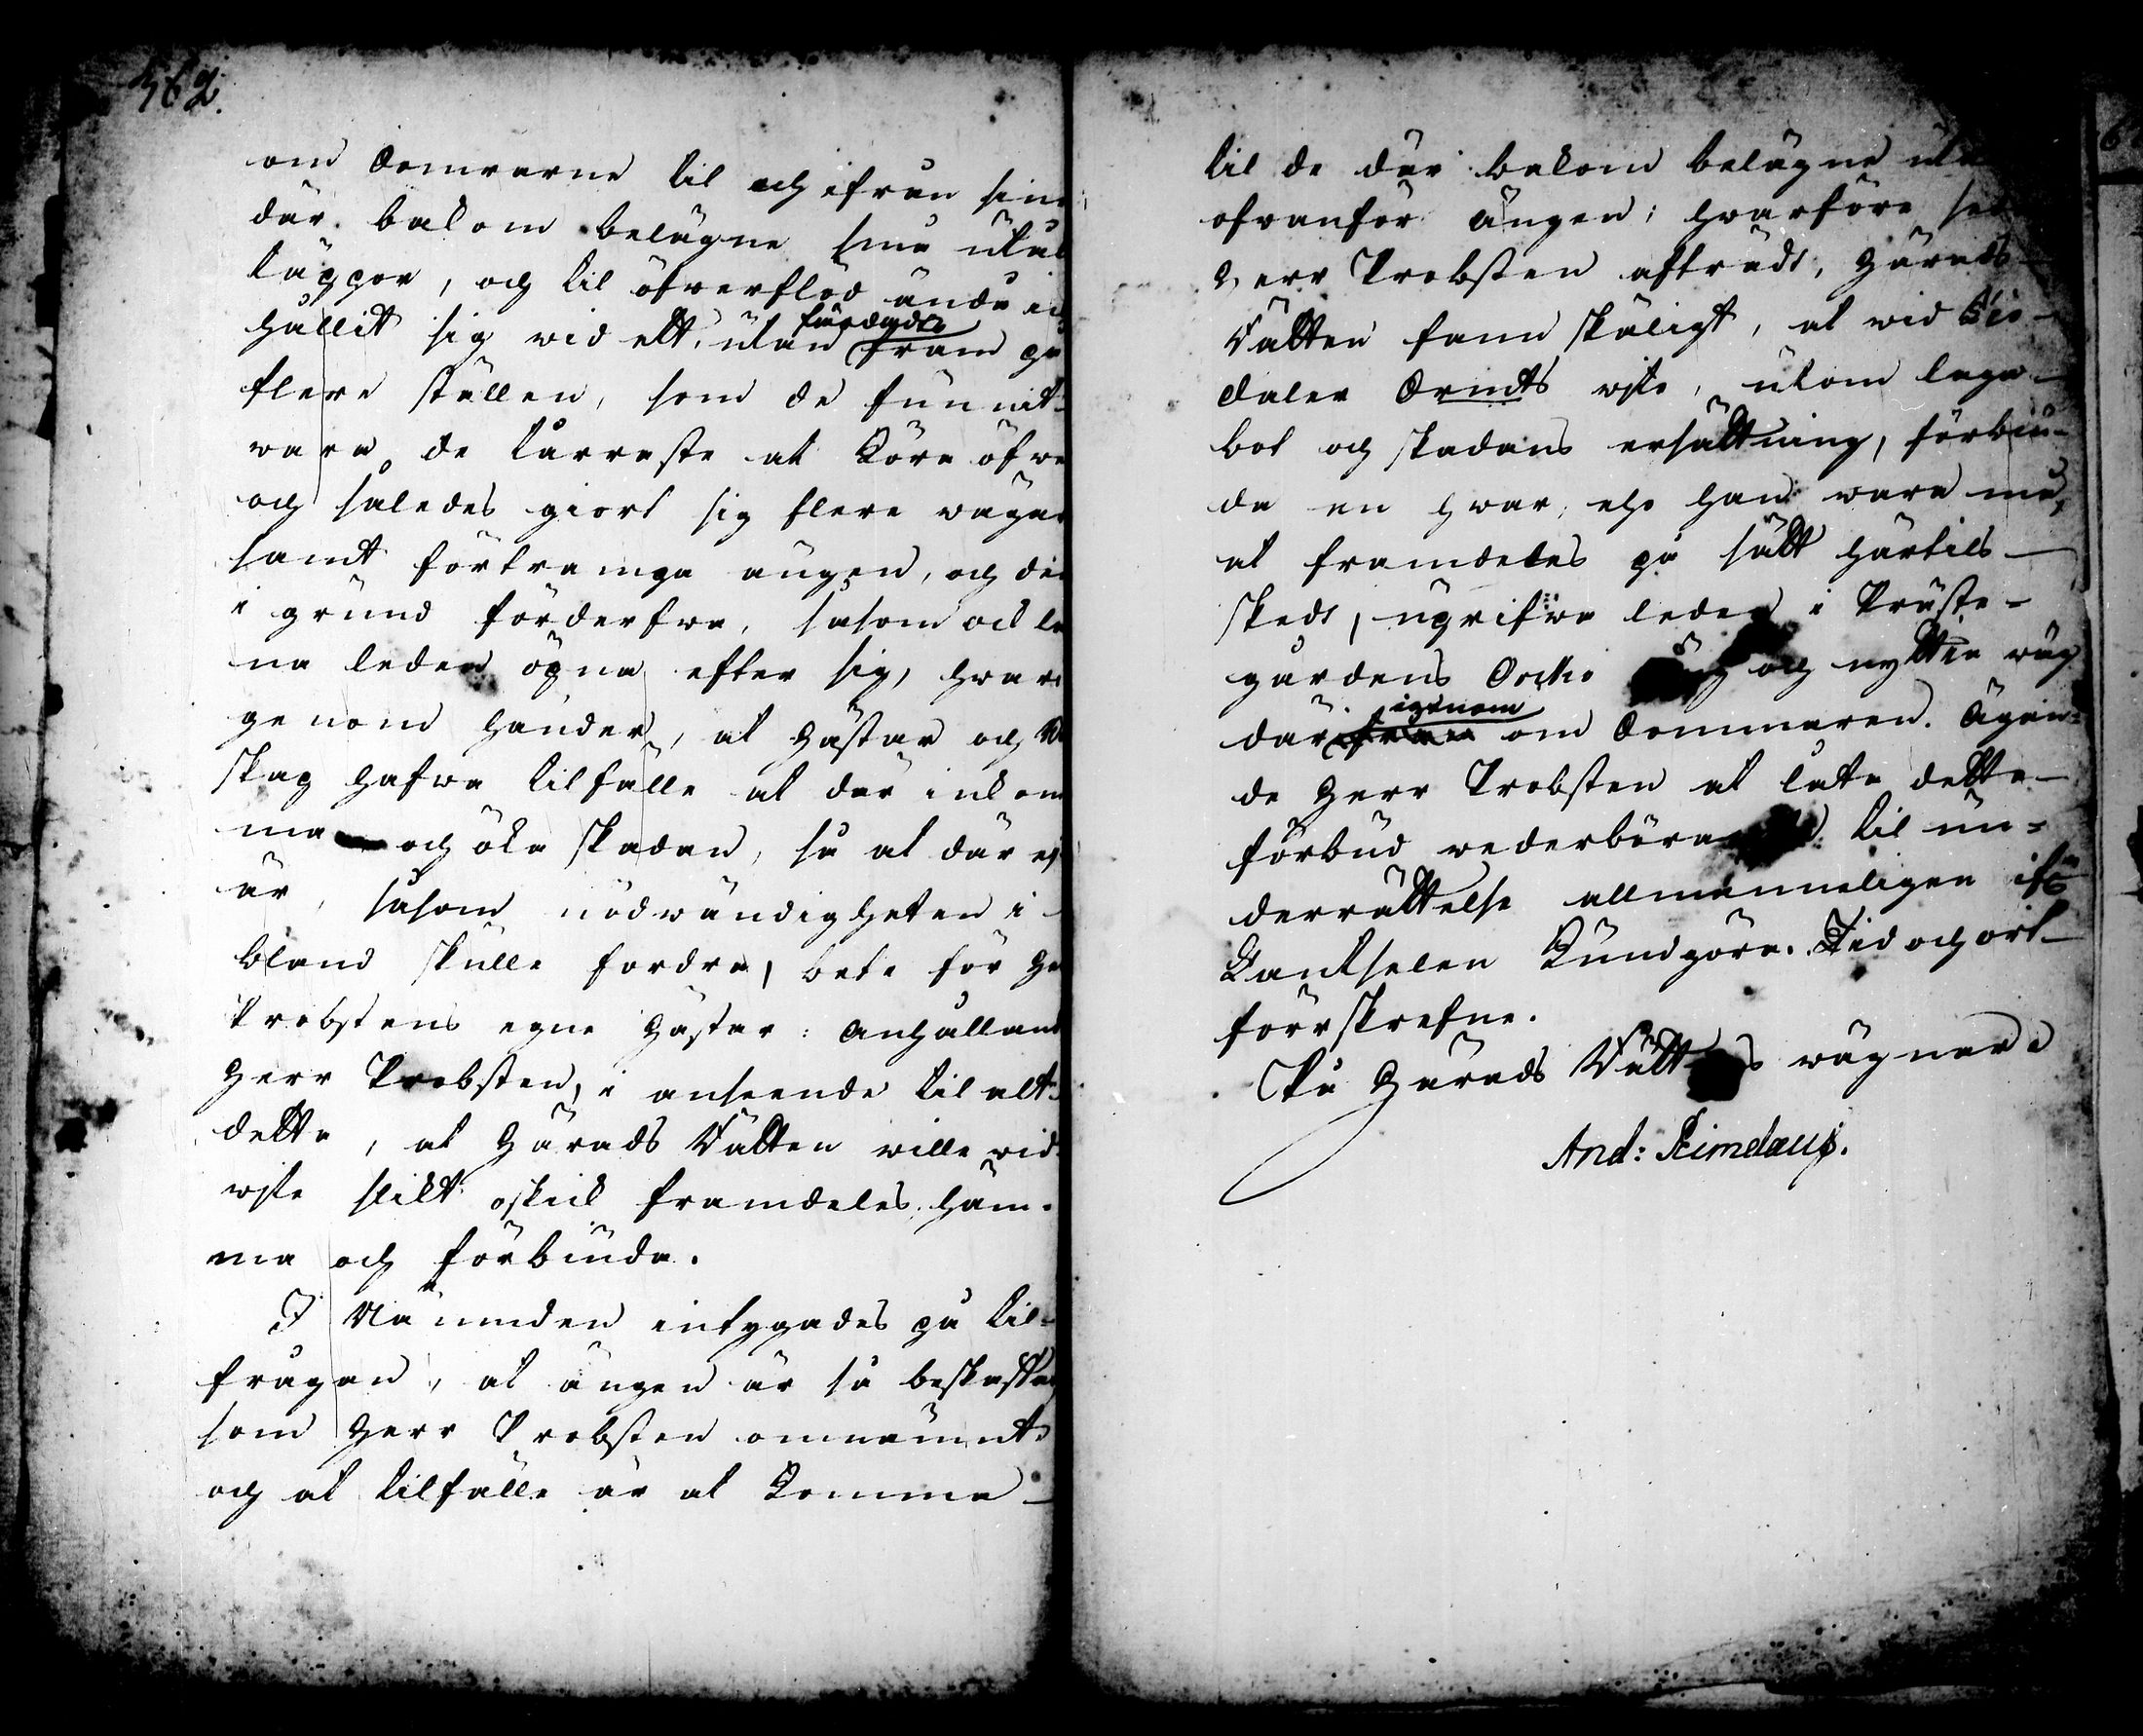 362.
om Somrarne til och ifrån sin
där bakom belägne små
täppor, och til öfwerflöd ändå
hållit sig wid ett, utan fram på
flere ställen, som de funnit
wara de torraste at köra öfwe
och således giort sig flere wägar
samt förtrampa ängen, och den
i grund förderfwa, såsom ock le
na leden öpna efter sig, hwari
genom händer, at Hästar och
skap hafwa tilfälle at där inkom
ma och öka skadan, så at där ej
är, såsom nödwändigheten i
bland skulle fordra, bete för He
Probstens egne Hästar: Anhålland
Herr Probsten, i anseende til alt
detta, at Härads Rätten wille wid
wite slikt oskick framdeles häm-
ma och förbiuda.
I Nämnden intygades på til-
frågan, at ängen är så beskaffa
som Herr Probsten omnämnt
och at tilfälle är at komma
til de där bakom belägne
ofwanför ängen; hwarföre
Herr Probsten afträdt, Härads
Rätten fann skäligt, at wid tio
daler S:mts wite, utom laga
bot och skadans ersättning, förbiu-
da en hwar, eho han wara må,
at framdeles på sätt härtils
skedt, uprifwa leden i Präste-
gårdens och nyttia wäg
där igenom om Sommaren. Ägan-
de Herr Probsten at låta detta
förbud wederböra til un-
derrättelse allmänneligen ifr
Cantselen kundgöra. Tid och ort
förrskrefne.
På Härads Rättens wägnar
And: